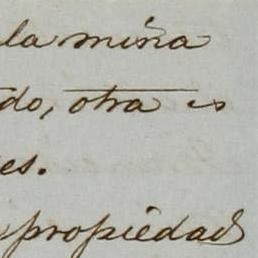 la mina
do, otra es
es.
propiedad